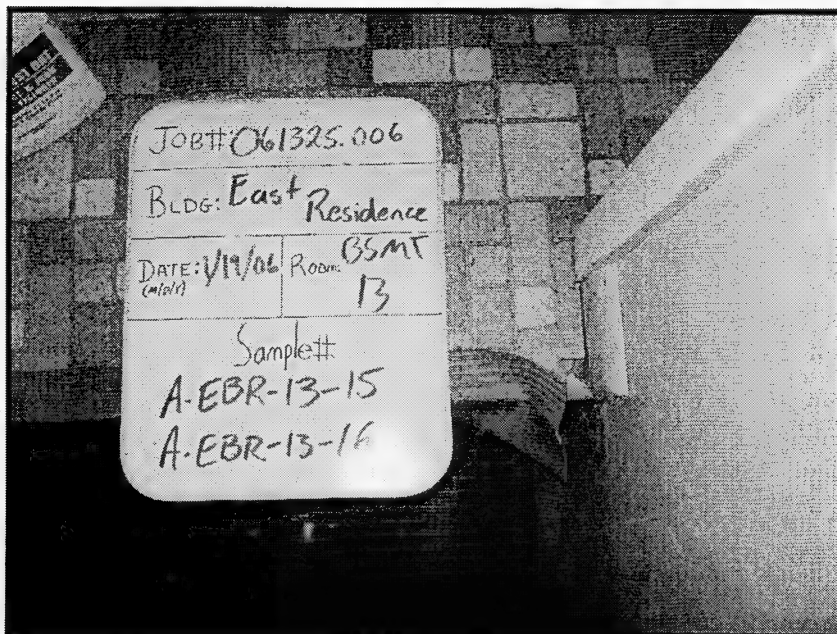 JOB#: 061325.006
BLDG: East Residence
DATE: 1/19/06
(M/D/Y)
ROOM: BSMT
13
Sample#
A-EBR-13-15
A-EBR-13-16